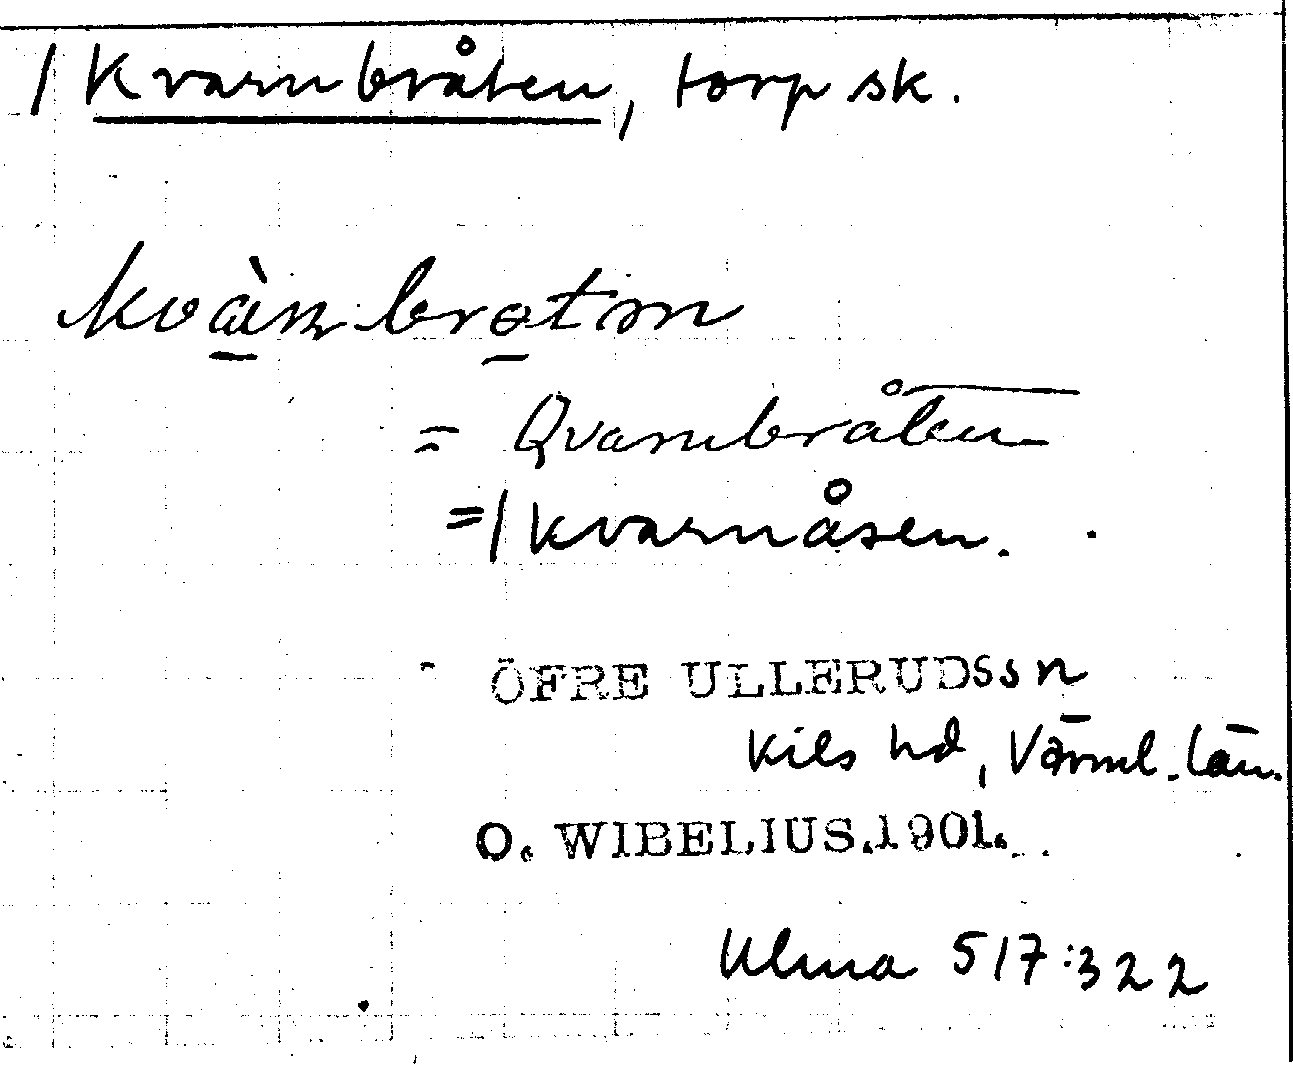 / Kvarnbråten, torp sk.
= Qvarnbråten
=/ Kvarnåsen.
ÖFRE ULLERUDSsn
Kils hd, Värml. län.
O. WIBELIUS.1901.
Ulma 517:322